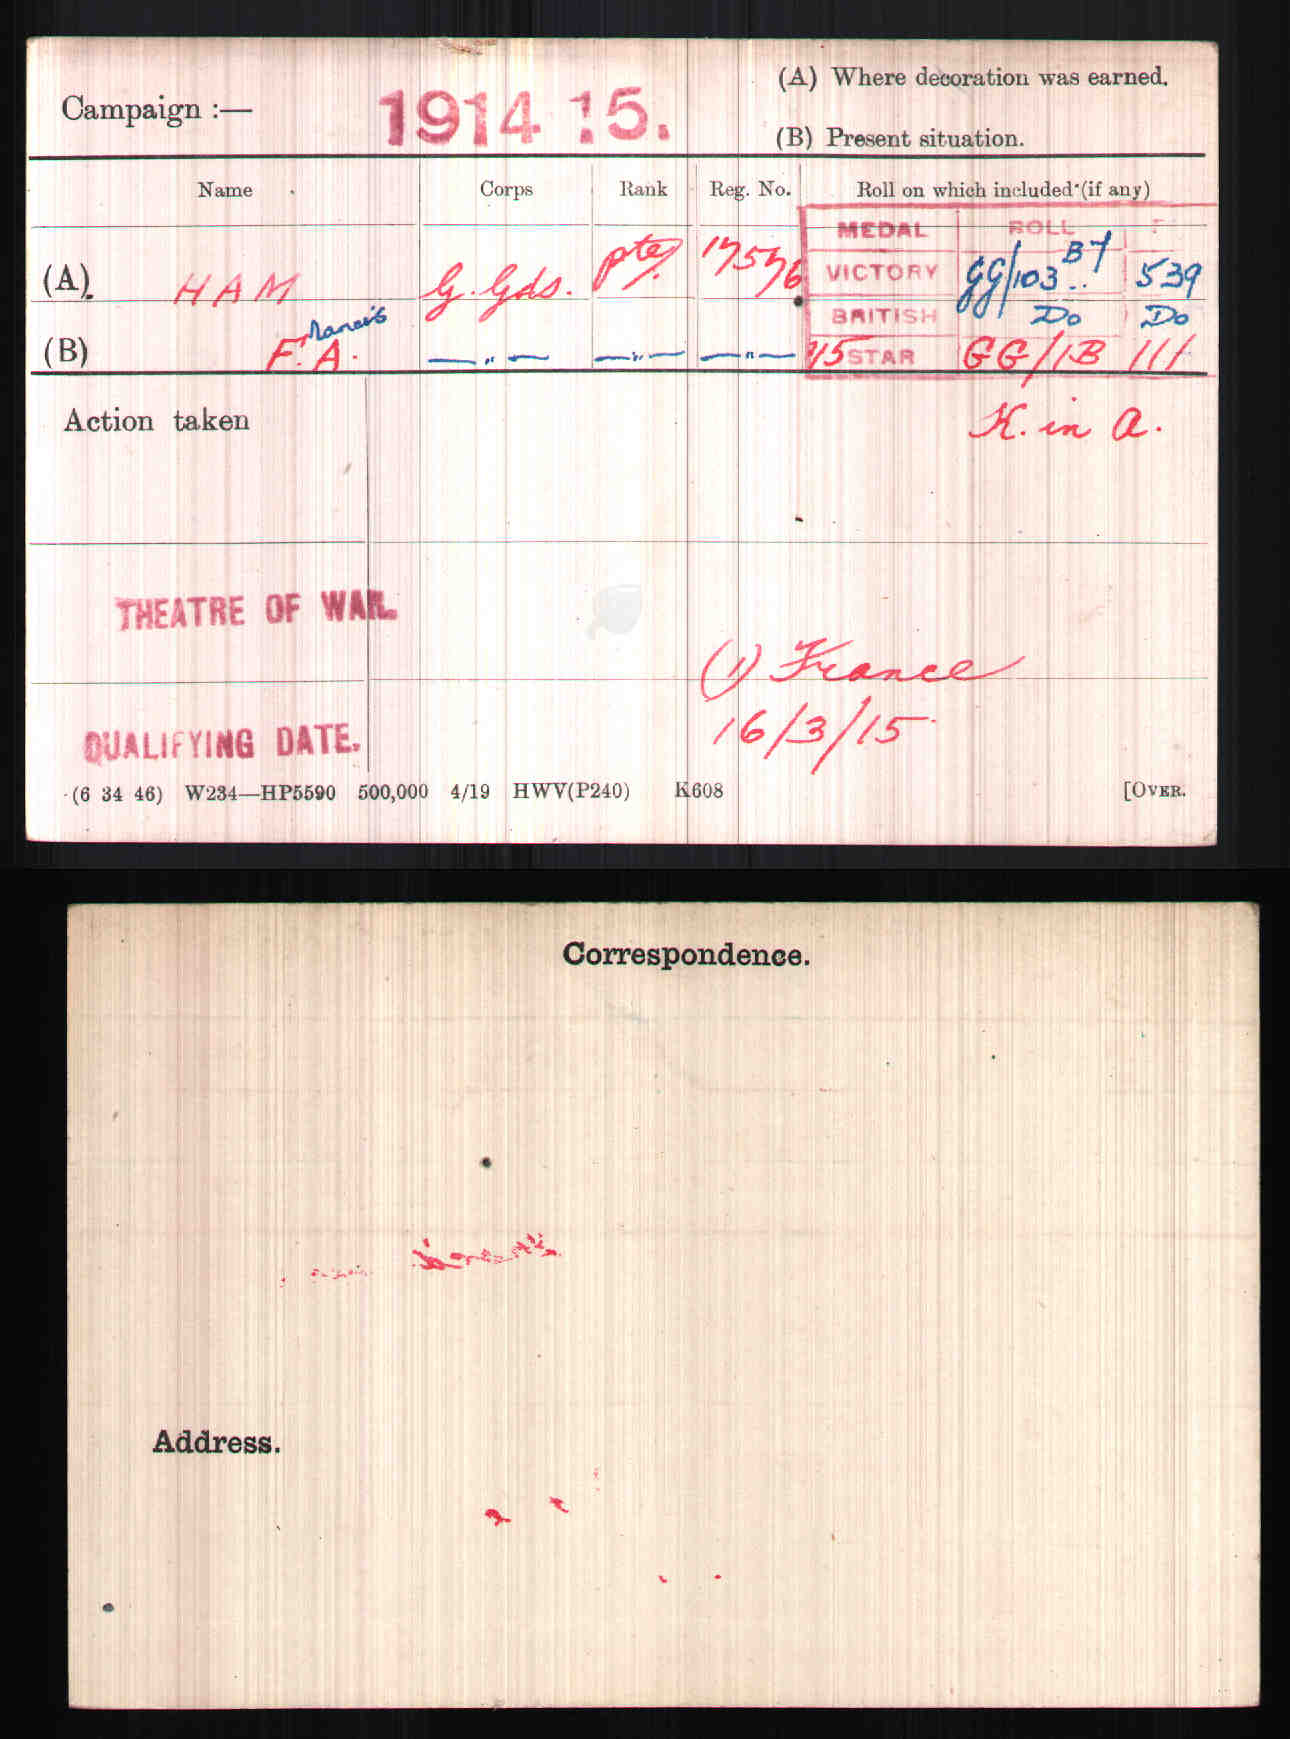 Campaign :— 1914 15.
(A) Where decoration was earned.
(B) Present situation.
Name Corps Rank Reg. No. Roll on which included (if any)
MEDAL ROLL
(A). HAM G. Gds. Pte. 17576 VICTORY GG/103 B7 539
BRITISH Do Do
(B) F. Francis A. —„— —„— —„— 15 STAR GG/1B 111
Action taken K. in A.
THEATRE OF WAR. (1) France
QUALIFYING DATE. 16/3/15
(6 34 46) W234—HP5590 500,000 4/19 HWV(P240) K608 [OVER.
Correspondence.
Address.